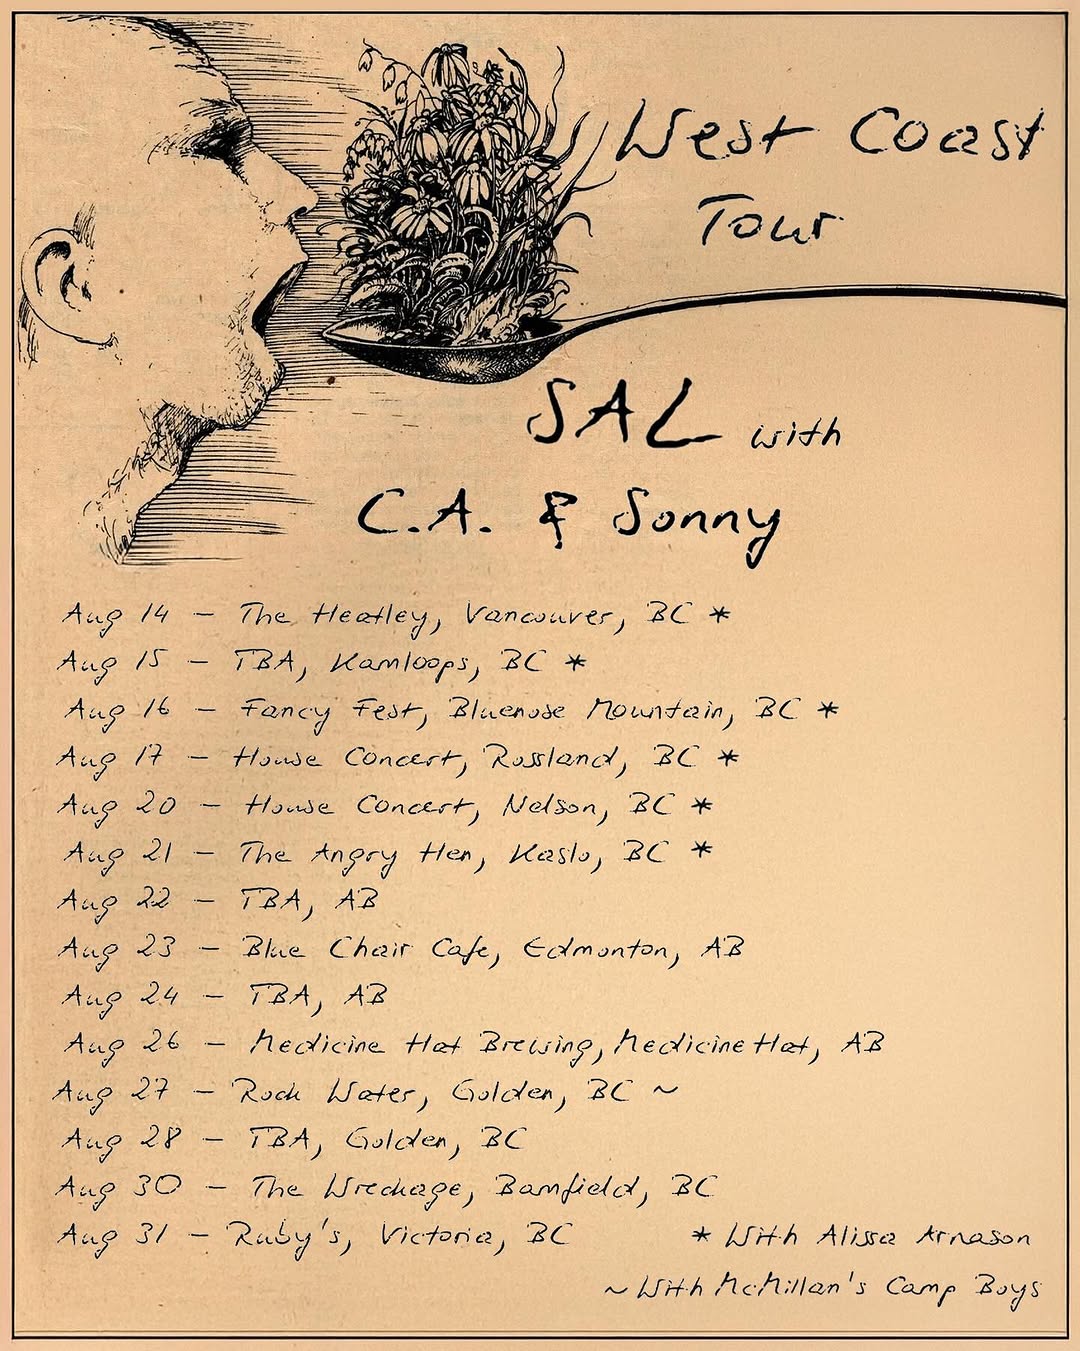 West Coast
Tour
SAL with
C.A. & Sonny
Aug 14 – The Heatley, Vancouver, BC *
Aug 15 – TBA, Kamloops, BC *
Aug 16 – Fancy Fest, Bluenose Mountain, BC *
Aug 17 – House Concert, Rossland, BC *
Aug 20 – House Concert, Nelson, BC *
Aug 21 – The Angry Hen, Kaslo, BC *
Aug 22 – TBA, AB
Aug 23 – Blue Chair Cafe, Edmonton, AB
Aug 24 – TBA, AB
Aug 26 – Medicine Hat Brewing, Medicine Hat, AB
Aug 27 – Rock Water, Golden, BC ~
Aug 28 – TBA, Golden, BC
Aug 30 – The Wreckage, Bamfield, BC
Aug 31 – Ruby's, Victoria, BC
* With Alissa Arnason
~ With McMillan's Camp Boys